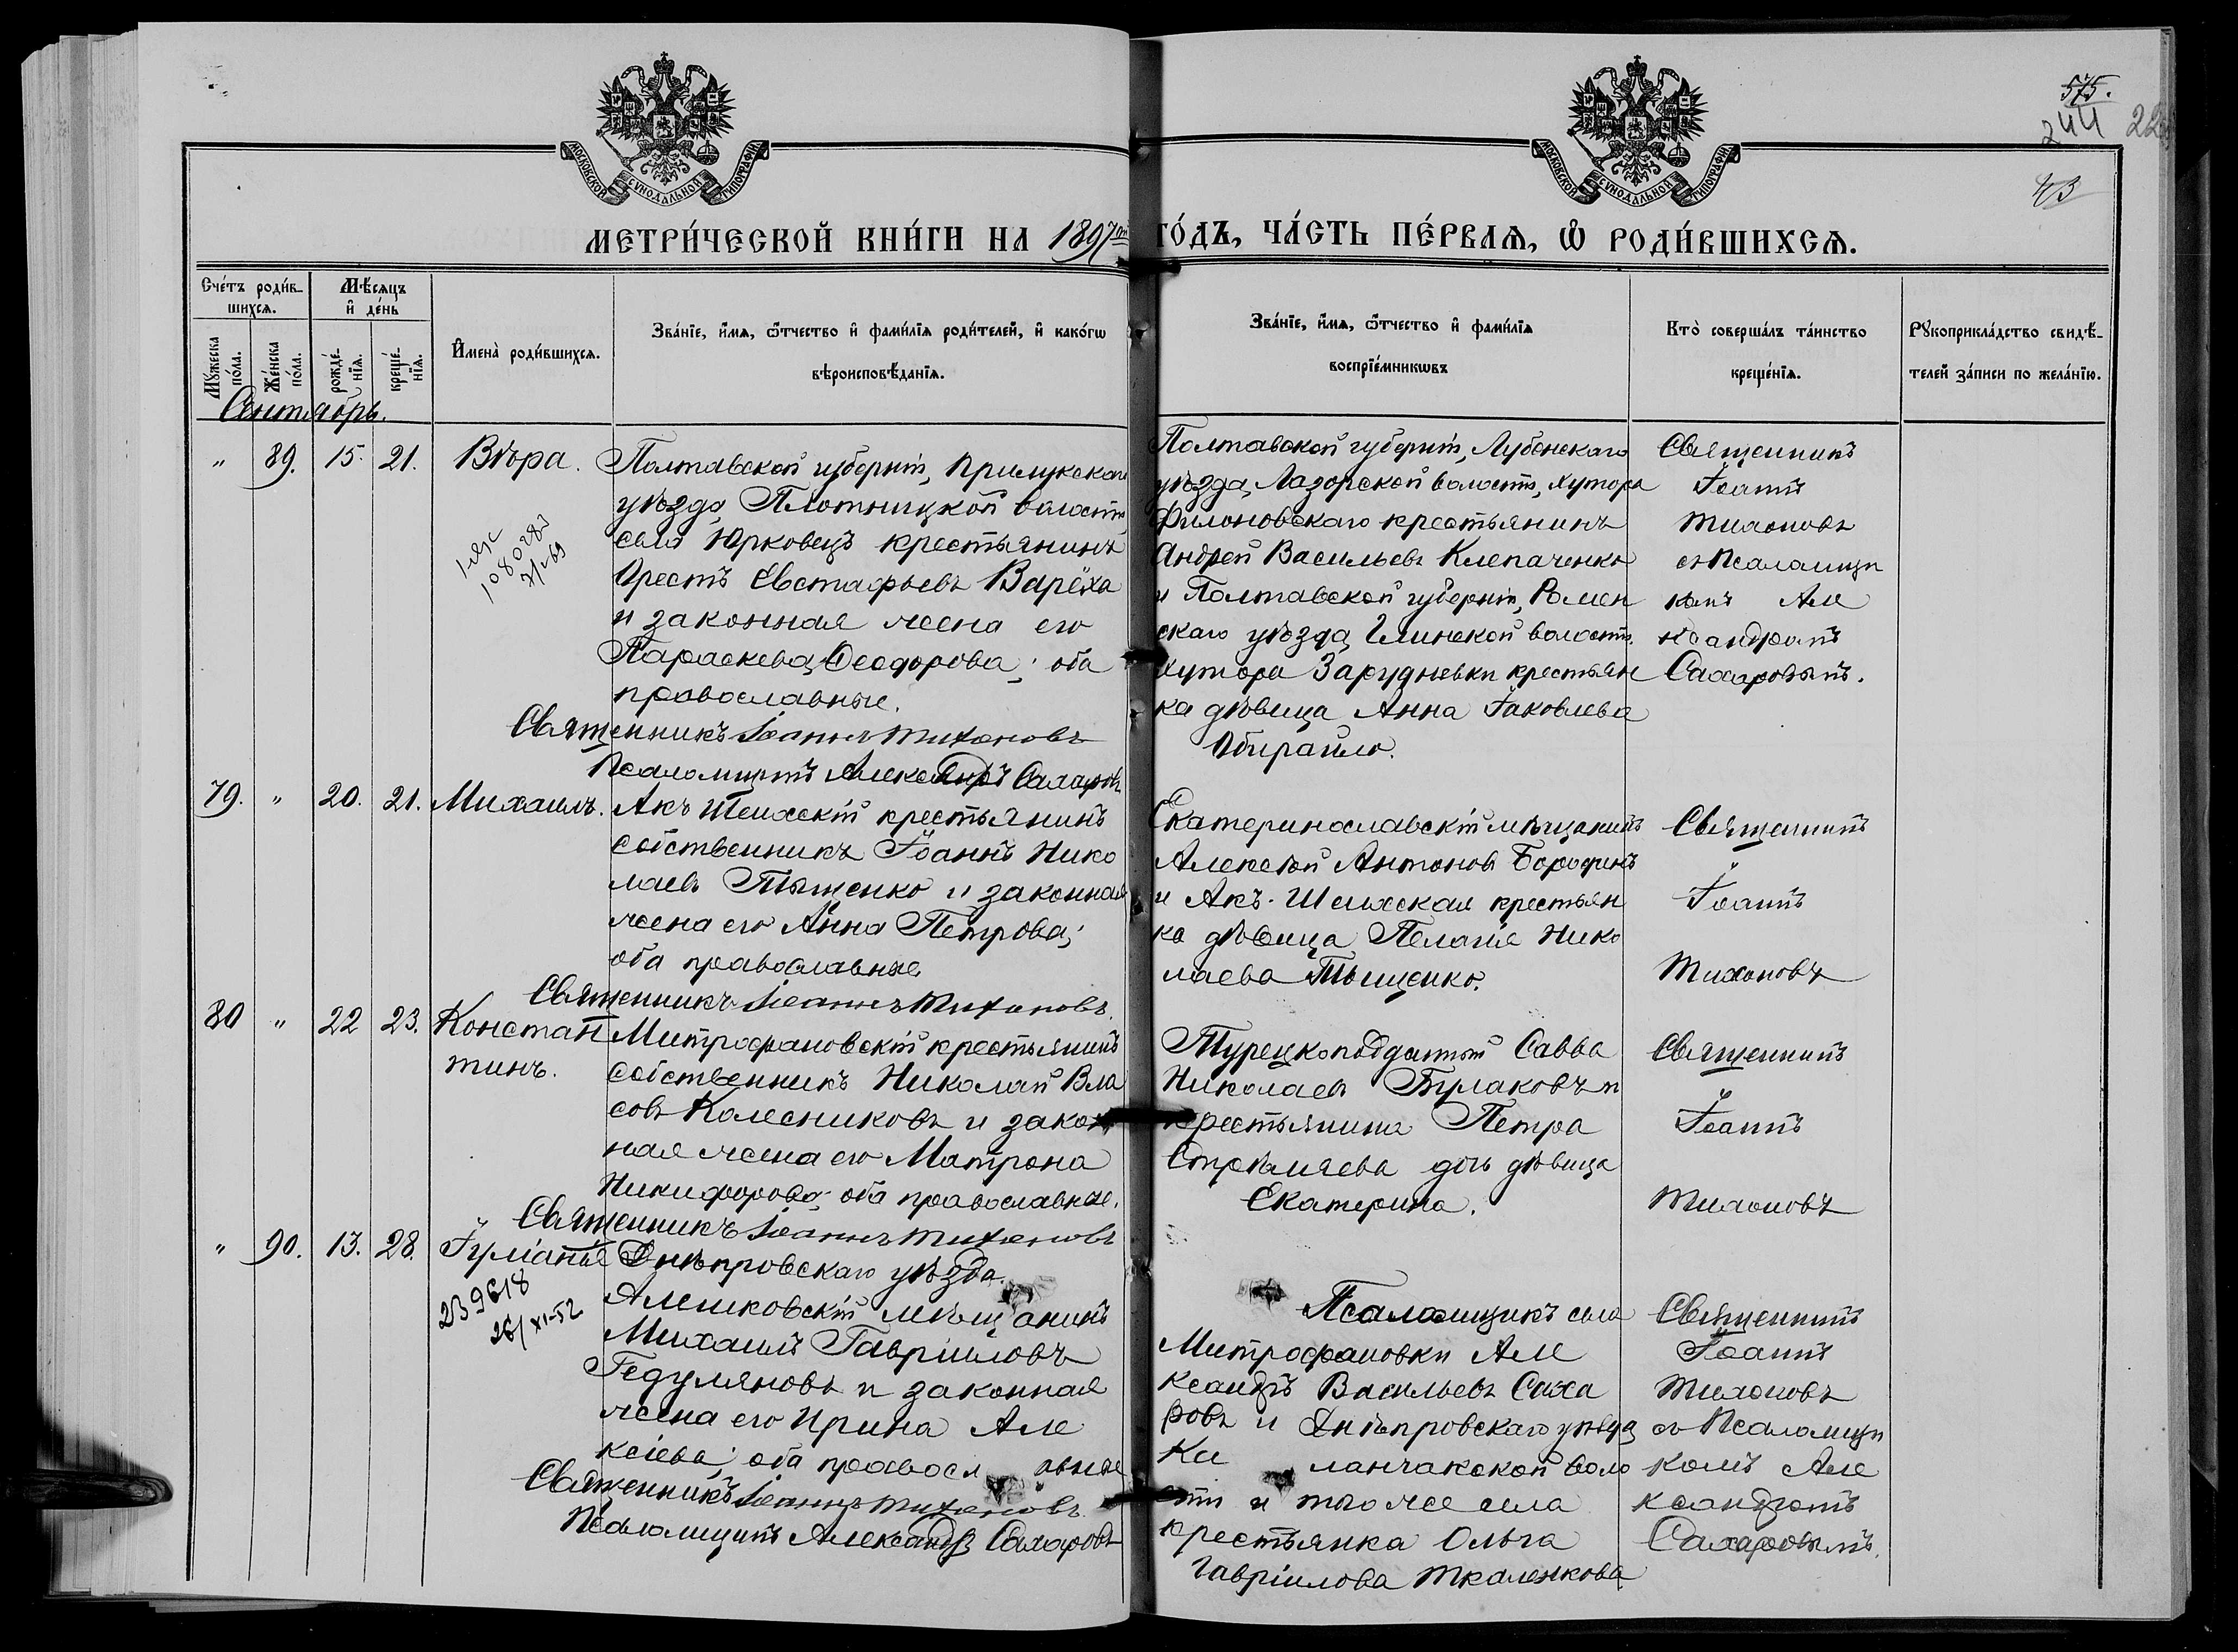 575.
244 22
43
МОСКОВСКОЙ СѴНОДАЛЬНОЙ ТИПОГРАФІИ
МОСКОВСКОЙ СѴНОДАЛЬНОЙ ТИПОГРАФІИ
МЕТРИ́ЧЕСКОЙ КНИ́ГИ НА 1897ой ГО́ДЪ, ЧА́СТЬ ПЕ́РВАѦ, Ѡ҆ РОДИ́ВШИХСѦ.
Сче́тъ роди́в-
шихсѧ.
Мѣ́сѧцъ
и҆ де́нь
Мꙋ́жеска по́ла.
Же́нска по́ла.
рожде́-
нїѧ.
креще́-
нїѧ.
И҆мена̀ роди́вшихсѧ.
Зва́нїе, и҆́мѧ, ѻ҆́тчество и҆ фами́лїѧ роди́телей, и҆ како́гѡ
вѣроисповѣ́данїѧ.
Зва́нїе, и҆́мѧ, ѻ҆́тчество и҆ фами́лїѧ
воспрїе́мникѡвъ
Кто̀ соверша́лъ та́инство
креще́нїѧ.
Рꙋкоприкла́дство свидѣ́-
телей за́писи по жела́нїю.
Сентябрь.
" 89. 15. 21. Вѣра.
Полтавской губерніи, Прилукскаго
уѣзда, Плотницкой волости
села Юрковецъ крестьянинъ
Орестъ Евстафьевъ Варёха
и законная жена его
Параскева Ѳеодорова; оба
православные.
Священникъ Іоаннъ Тихоновъ
Псаломщикъ Александръ Сахаровъ
Полтавской губерніи, Лубенскаго
уѣзда, Лазорской волости, хутора
Филоновскаго крестьянинъ
Андрей Васильевъ Клепаченко
и Полтавской губерніи, Ромен
скаго уѣзда Глинской волости
хутора Зарудневки крестьян
ка дѣвица Анна Іаковлева
Обирайло.
Священникъ
Іоаннъ
Тихоновъ
съ Псаломщи
комъ Але
ксандромъ
Сахаровымъ.
79. " 20. 21. Михаилъ.
Акъ Шеихскій крестьянинъ
собственникъ Іоаннъ Нико
лаевъ Тыщенко и законная
жена его Анна Петрова;
оба православные
Священникъ Іоаннъ Тихоновъ.
Екатеринославскій мѣщанинъ
Алексѣй Антоновъ Бородинъ
и Акъ-Шеихская крестьян
ка дѣвица Пелагія Нико
лаева Тыщенко.
Священникъ
Іоаннъ
Тихоновъ
80 " 22 23. Констан
тинъ.
Митрофановскій крестьянинъ
собственникъ Николай Вла
совъ Колесниковъ и закон
ная жена его Матрона
Никифорова; оба православные.
Священникъ Іоаннъ Тихоновъ
Турецкоподданный Савва
Николаевъ Бурлаковъ и
крестьянина Петра
Стрѣляева дочь дѣвица
Екатерина.
Священникъ
Іоаннъ
Тихоновъ
" 90. 13. 28. Іуліанія
239618
26/XI-52
Днѣпровскаго уѣзда
Алешковскій мѣщанинъ
Михаилъ Гавріиловъ
Гедуляновъ и законная
жена его Ирина Але
ксіева; оба православные
Священникъ Іоаннъ Тихоновъ.
Псаломщикъ Александръ Сахаровъ
Псаломщикъ села
Митрофановки Але
ксандръ Васильевъ Саха
ровъ и Днѣпровскаго уѣзда
ланчакской воло
сти и того же села
крестьянка Ольга
Гавріилова Ткаленкова
Священникъ
Іоаннъ
Тихоновъ
съ Псаломщи
комъ Але
ксандромъ
Сахаровымъ.